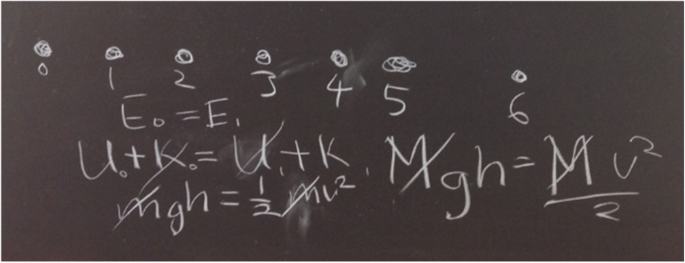 0 1 2 3 4 5 6
E₀ = E₁
U₀ + K₀ = U₁ + K₁
mgh = ½mv²
Mgh = Mv²/2